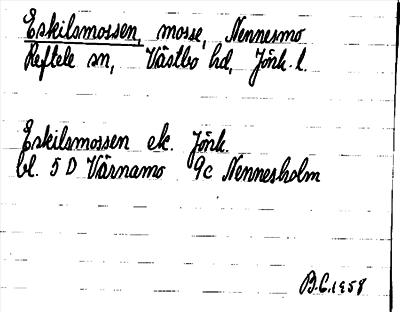 Eskilsmossen, mosse, Nennesmo
Reftele sn, Västbo hd, Jönk. l.
Eskilsmossen ek. Jönk.
bl. 5 D Värnamo 9c Nennesholm
B.C. 1958